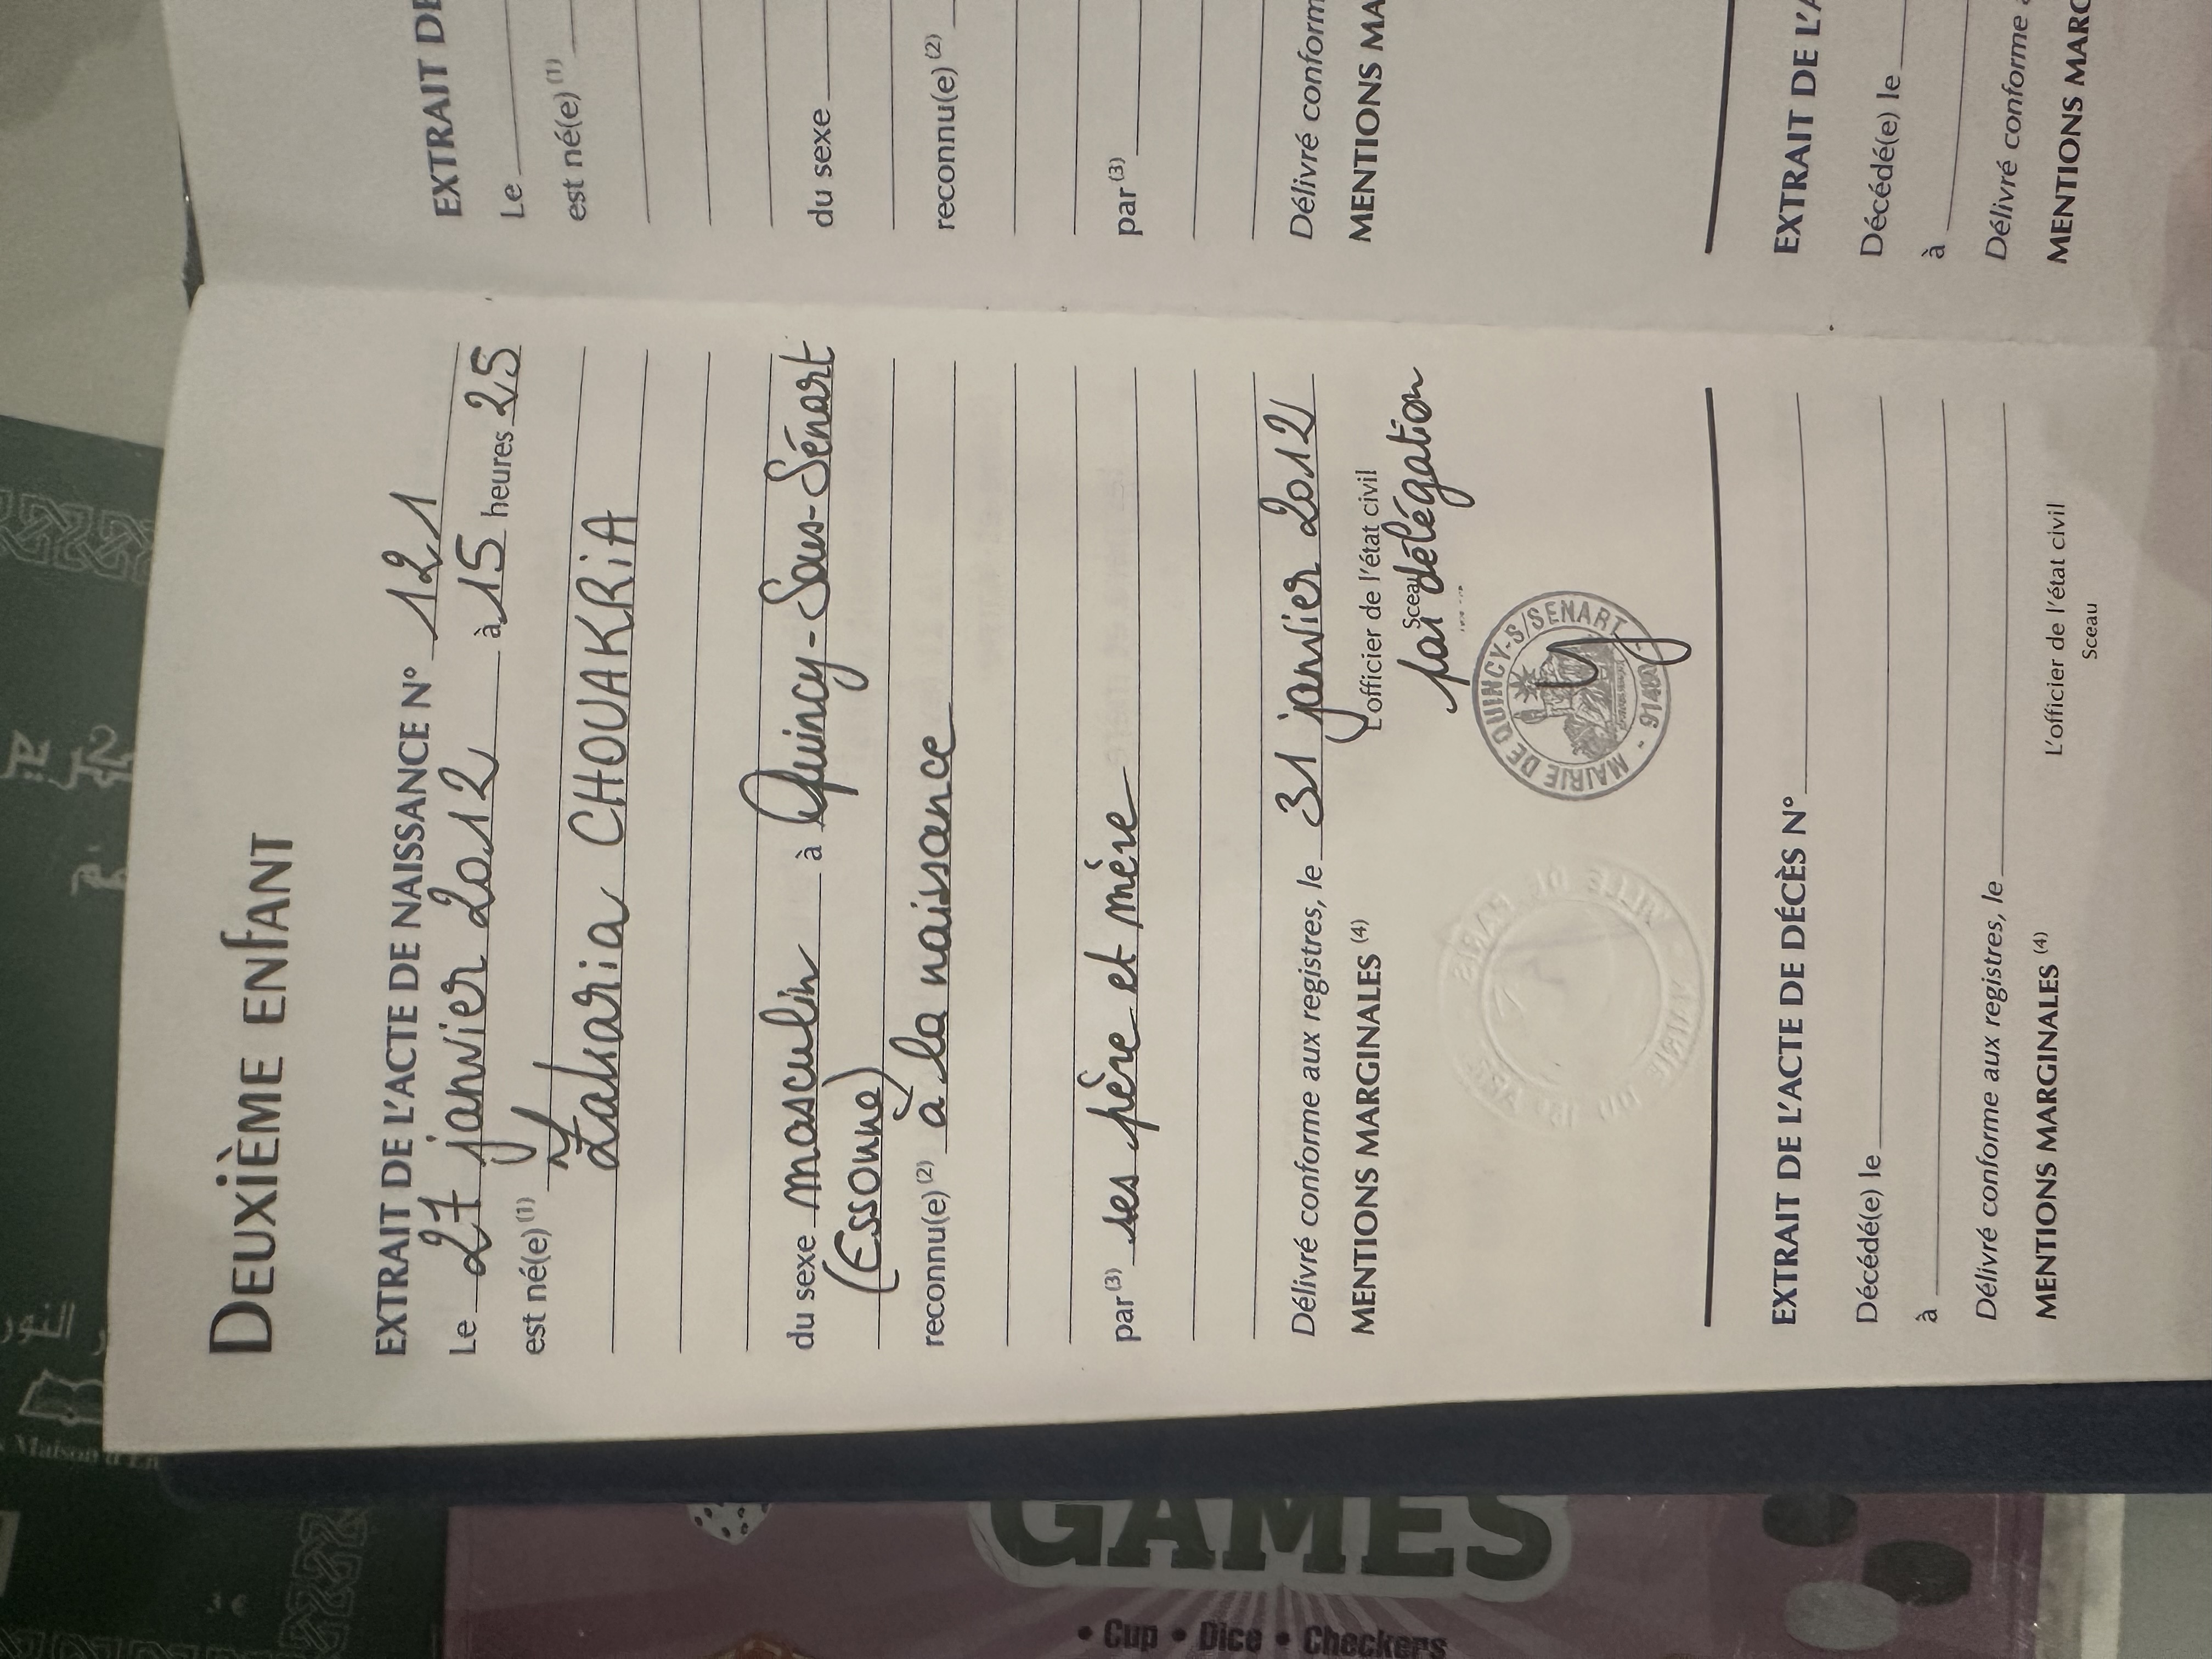 DEUXIÈME ENFANT
EXTRAIT DE L'ACTE DE NAISSANCE N° 121
Le 27 janvier 2012 à 15 heures 25
est né(e)(1)
Zakaria CHOUAKRIA
du sexe masculin à Quincy-Sous-Sénart
(Essonne)
reconnu(e)(2) à la naissance
par(3) ses père et mère
Délivré conforme aux registres, le 31 janvier 2012
MENTIONS MARGINALES (4)
L'officier de l'état civil
Sceau
par délégation
MAIRIE DE QUINCY-S/SENART - 91480
MAIRIE DU VILLE DE PARIS
EXTRAIT DE L'ACTE DE DÉCÈS N°
Décédé(e) le
à
Délivré conforme aux registres, le
MENTIONS MARGINALES (4)
L'officier de l'état civil
Sceau
EXTRAIT DE
Le
est né(e)(1)
du sexe
reconnu(e)(2)
par(3)
Délivré conform
MENTIONS MA
EXTRAIT DE L'A
Décédé(e) le
à
Délivré conforme a
MENTIONS MARG
النور
Maison d'En
GAMES
• Cup • Dice • Checkers